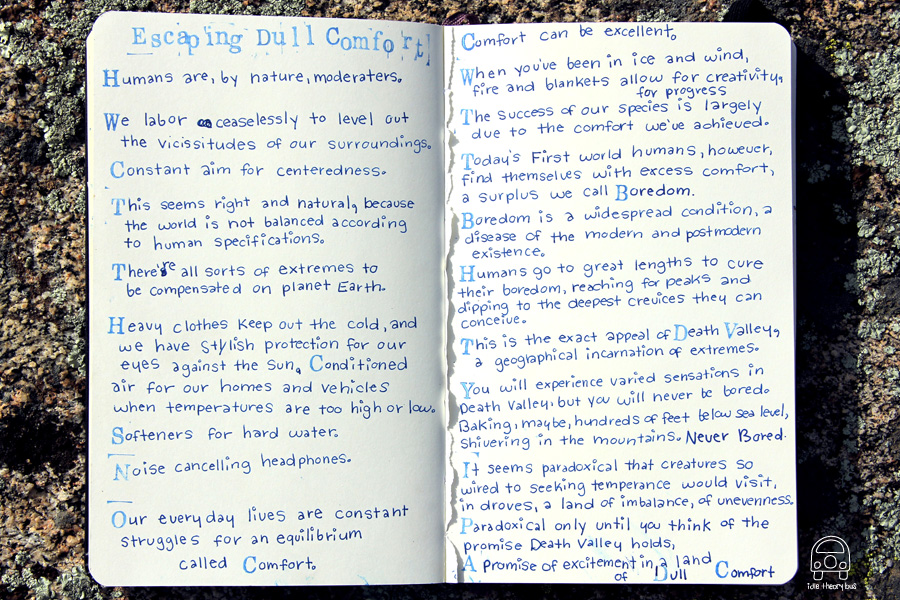 Escaping Dull Comfort
Humans are, by nature, moderaters.
We labor ceaselessly to level out
the vicissitudes of our surroundings.
Constant aim for centeredness.
This seems right and natural, because
the world is not balanced according
to human specifications.
There're all sorts of extremes to
be compensated on planet Earth.
Heavy clothes keep out the cold, and
we have stylish protection for our
eyes against the Sun. Conditioned
air for our homes and vehicles
when temperatures are too high or low.
Softeners for hard water.
Noise cancelling headphones.
Our everyday lives are constant
struggles for an equilibrium
called Comfort.
Comfort can be excellent.
When you've been in ice and wind,
fire and blankets allow for creativity,
for progress
The success of our species is largely
due to the comfort we've achieved.
Today's First world humans, however,
find themselves with excess comfort,
a surplus we call Boredom.
Boredom is a widespread condition, a
disease of the modern and postmodern
existence.
Humans go to great lengths to cure
their boredom, reaching for peaks and
dipping to the deepest crevices they can
conceive.
This is the exact appeal of Death Valley,
a geographical incarnation of extremes.
You will experience varied sensations in
Death Valley, but you will never be bored.
Baking, maybe, hundreds of feet below sea level,
shivering in the mountains. Never Bored.
It seems paradoxical that creatures so
wired to seeking temperance would visit,
in droves, a land of imbalance, of unevenness.
Paradoxical only until you think of the
promise Death Valley holds,
A promise of excitement in a land
of Dull Comfort
idle theory bus